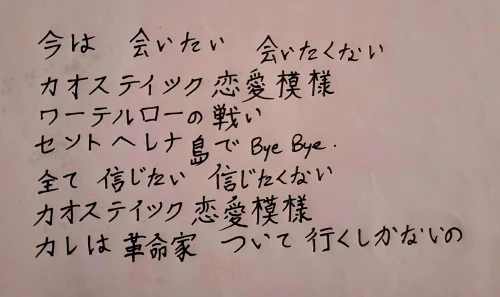 今は 会いたい 会いたくない
カオスティック恋愛模様
ワーテルローの戦い
セントヘレナ島で Bye Bye.
全て 信じたい 信じたくない
カオスティック恋愛模様
カレは革命家 ついて行くしかないの